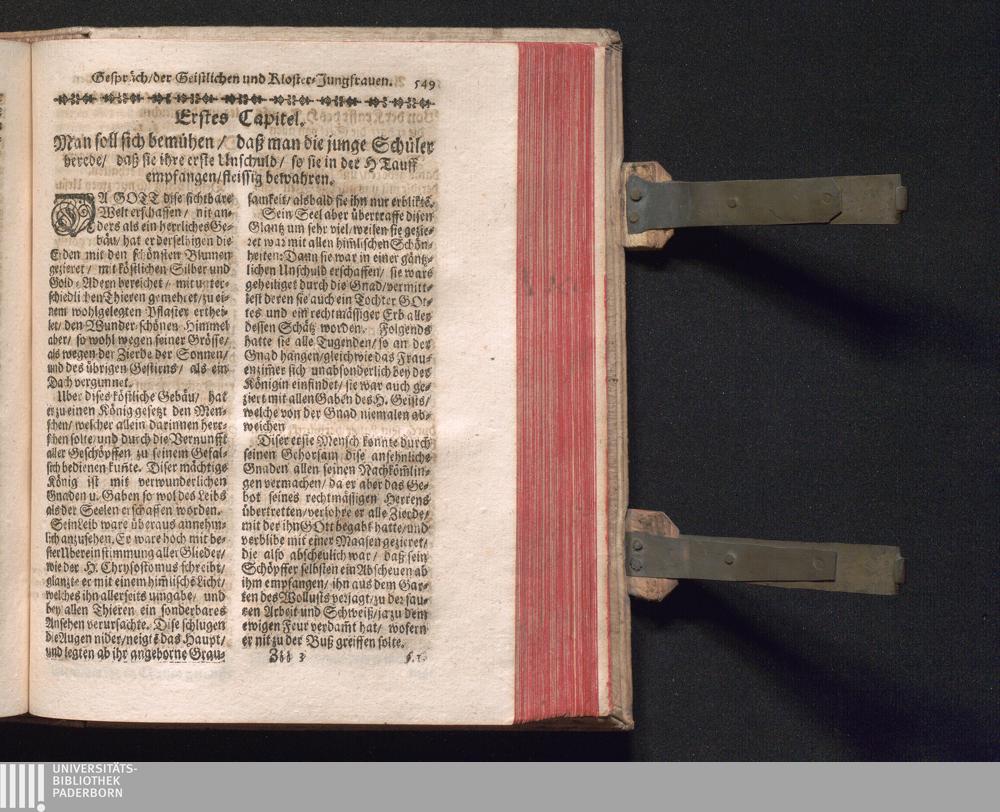 Gespräch/der Geistlichen und Kloster-Jungfrauen. 549
Erstes Capitel.
Man soll sich bemühen / daß man die junge Schüler
berede/ daß sie ihre erste Unschuld/ so sie in der H Tauff
empfangen/fleissig bewahren.
DA GOTT dise sichtbare
Welt erschaffen / nit an-
ders als ein herrliches Ge-
bäu/ hat er derselbigen die
Erden mit den schönsten Blumen
gezieret / mit köstlichen Silber und
Gold-Adern bereichet / mit unter-
schiedlichen Thieren gemehret/zu ei-
nem wohlgelegten Pflaster erthei-
let/ den Wunder-schönen Himmel
aber/ so wohl wegen seiner Grösse/
als wegen der Zierde der Sonnen/
und des übrigen Gestirns / als ein
Dach vergunnet.
Uber dises köstliche Gebäu/ hat
er zu einen König gesetzt den Men-
schen/ welcher allein darinnen herr-
schen solte/ und durch die Vernunfft
aller Geschöpffen zu seinem Gefal-
sich bedienen kunte. Diser mächtige
König ist mit verwunderlichen
Gnaden u. Gaben so wol des Leibs
als der Seelen erschaffen worden.
Sein Leib ware überaus annehm-
lich anzusehen. Er ware hoch mit be-
ster Ubereinstimmung aller Glieder/
wie der H. Chrysostomus schreibt/
glanzte er mit einem himlische Licht/
welches ihn allerseits umgabe/ und
bey allen Thieren ein sonderbares
Ansehen verursachte. Dise schlugen
die Augen nider/neigtē das Haupt/
und legten ab ihr angeborne Grau-
samkeit/ alsbald sie ihn nur erblikte.
Sein Seel aber übertraffe disen
Glantz um sehr viel/ weilen sie gezie-
ret war mit allen himlischen Schön-
heiten: Dann sie war in einer gäntz-
lichen Unschuld erschaffen/ sie ware
geheiliget durch die Gnad/vermitt-
lest deren sie auch ein Tochter GOt-
tes und ein rechtmässiger Erb aller
dessen Schätz worden. Folgends
hatte sie alle Tugenden/ so an der
Gnad hangen/gleichwie das Frau-
enzim̄er sich unabsonderlich bey der
Königin einfindet/ sie war auch ge-
ziert mit allen Gaben des H. Geists/
welche von der Gnad niemalen ab-
weichen
Diser erste Mensch konnte durch
seinen Gehorsam dise ansehnliche
Gnaden allen seinen Nachköm̄lin-
gen vermachen/ da er aber das Ge-
bot seines rechtmässigen Herrens
übertretten/verlohre er alle Zierde/
mit der ihn GOtt begabt hatte/und
verblibe mit einer Maasen gezieret/
die also abscheulich war / daß sein
Schöpffer selbsten ein Abscheuen ab
ihm empfangen/ ihn aus dem Gar-
ten des Wollusts verjagt/zu der sau-
ren Arbeit und Schweiß/ja zu dem
ewigen Feur verdam̄t hat/ wofern
er nit zu der Buß greiffen solte.
Zzz 3 §.1.
UNIVERSITÄTS-
BIBLIOTHEK
PADERBORN